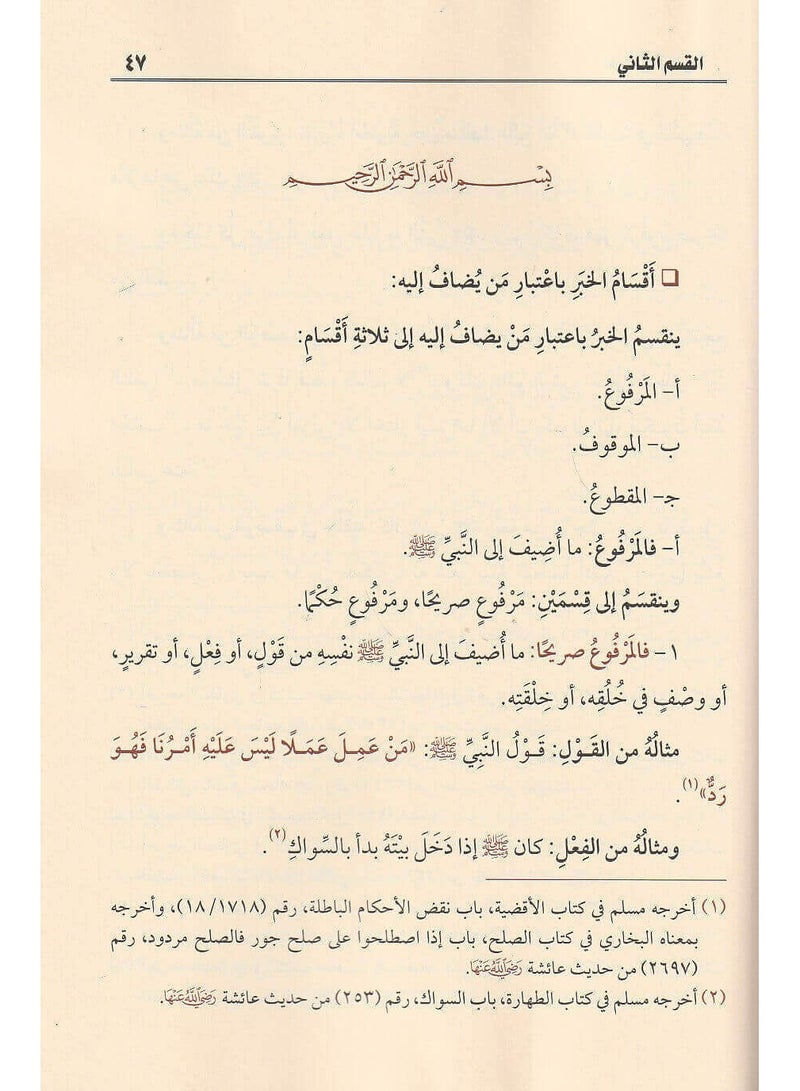 القسم الثاني ٤٧
بِسْمِ اللَّهِ الرَّحْمَٰنِ الرَّحِيمِ
❑ أَقْسَامُ الخبَرِ باعْتبارِ مَن يُضافُ إليه:
ينقسمُ الخبرُ باعتبارِ مَنْ يضافُ إليه إلى ثلاثةِ أَقْسَامٍ:
أ- المَرْفُوعُ.
ب- الموقوفُ.
جـ- المقطوعُ.
أ- فالمَرْفُوعُ: ما أُضِيفَ إلى النَّبيِّ ﷺ.
وينقسَمُ إلى قِسْمَيْنِ: مَرْفُوعٍ صريحًا، ومَرْفُوعٍ حُكْمًا.
١- فالمَرْفُوعُ صريحًا: ما أُضيفَ إلى النَّبيِّ ﷺ نفْسِهِ من قَوْلٍ، أو فِعْلٍ، أو تقريرٍ،
أو وصْفٍ في خُلُقِه، أو خِلْقَتِه.
مثالُهُ من القَوْلِ: قَوْلُ النَّبيِّ ﷺ: «مَنْ عَمِلَ عَمَلًا لَيْسَ عَلَيْهِ أَمْرُنَا فَهُوَ
رَدٌّ»(١).
ومثالُهُ من الفِعْلِ: كان ﷺ إذا دَخَلَ بيْتَهُ بدأ بالسِّواكِ(٢).
(١) أخرجه مسلم في كتاب الأقضية، باب نقض الأحكام الباطلة، رقم (١٨/١٧١٨)، وأخرجه
بمعناه البخاري في كتاب الصلح، باب إذا اصطلحوا على صلح جور فالصلح مردود، رقم
(٢٦٩٧) من حديث عائشة رَضِيَ اللَّهُ عَنْهَا.
(٢) أخرجه مسلم في كتاب الطهارة، باب السواك، رقم (٢٥٣) من حديث عائشة رَضِيَ اللَّهُ عَنْهَا.